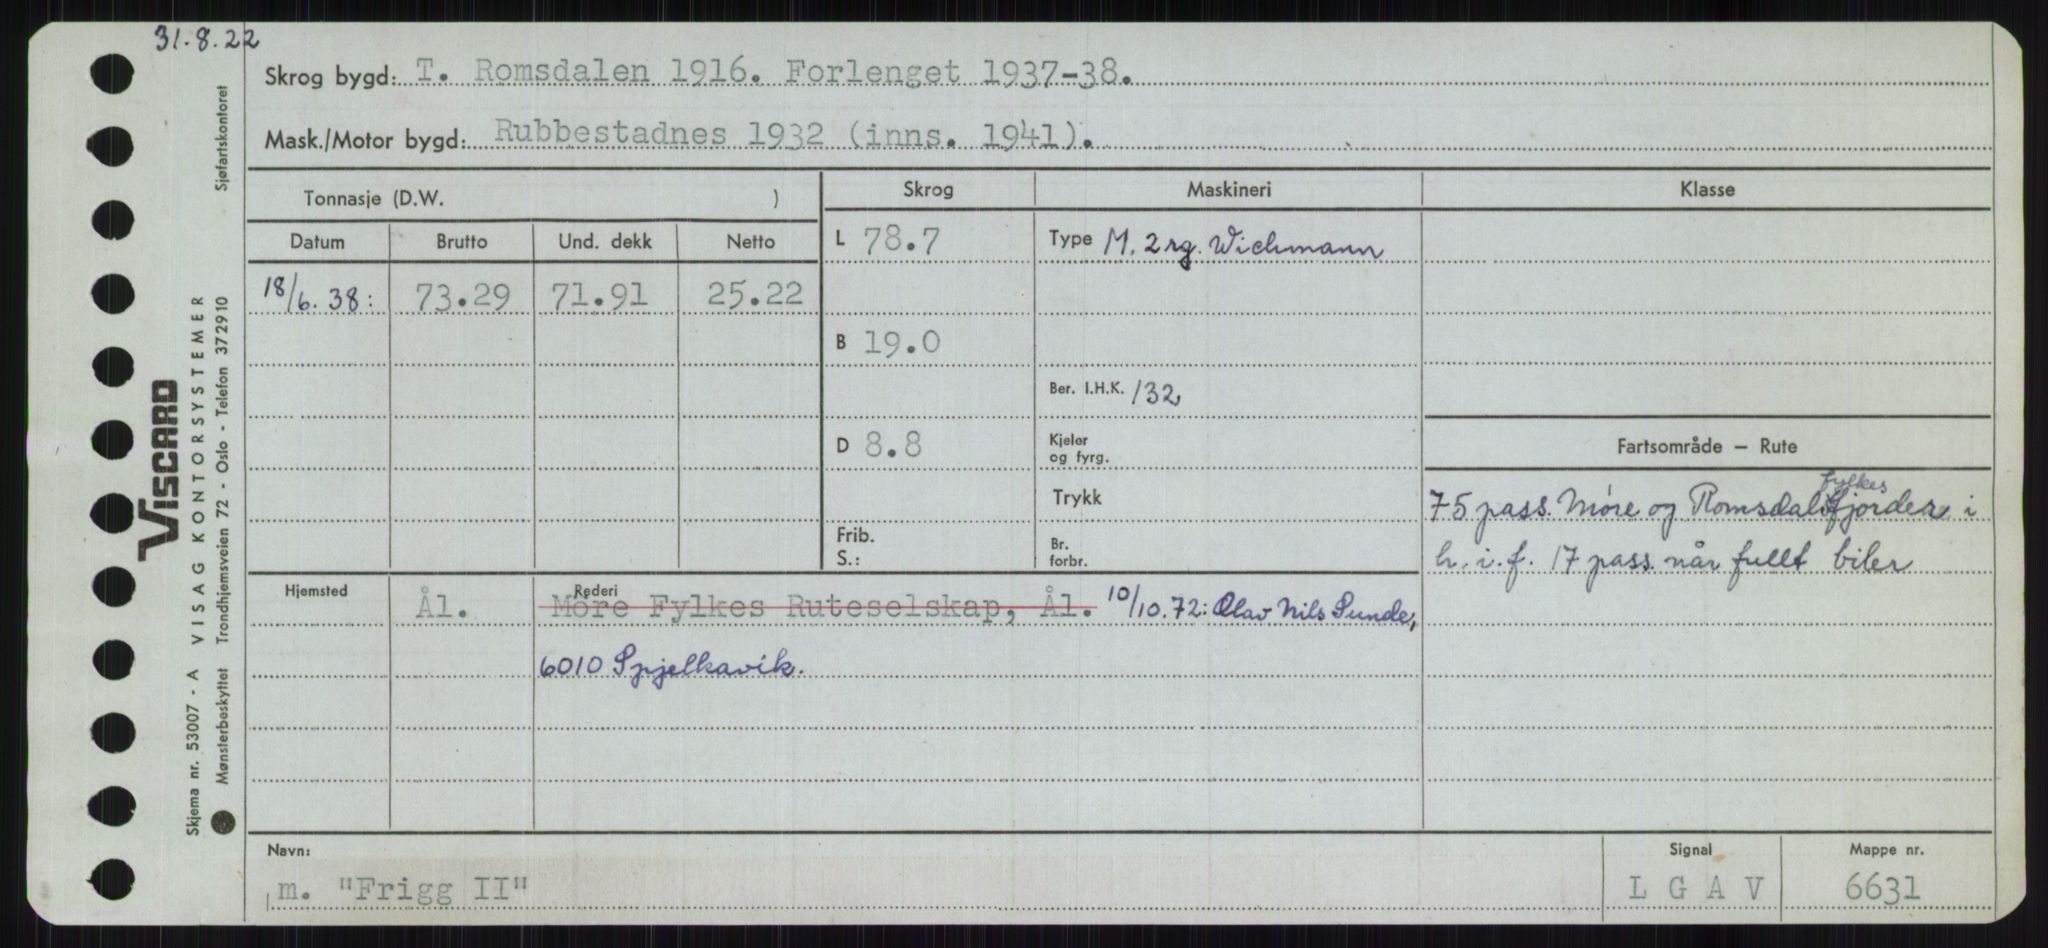 31.8.22
Skrog bygd: T. Romsdalen 1916. Forlenget 1937-38.
Mask./Motor bygd: Rubbestadnes 1932 (inns. 1941).
Tonnasje (D.W. )
Skrog
Maskineri
Klasse
Datum Brutto Und. dekk Netto
L 78.7
Type M. 2 rg. Wichmann
18/6.38: 73.29 71.91 25.22
B 19.0
Ber. I.H.K. 132
D 8.8
Kjeler
og fyrg.
Trykk
Frib.
S.:
Br.
forbr.
Fartsområde – Rute
fylkes
75 pass. Møre og Romsdals fjorder i
h.i.f. 17 pass. når fullt biler
Hjemsted
Rederi
Ål. Møre Fylkes Ruteselskap, Ål. 10/10.72: Olav Nils Sunde,
6010 Spjelkavik.
Navn:
m. "Frigg II"
Signal
L G A V
Mappe nr.
6631
VISCARD
Skjema nr. 53007 - A VISAG KONTORSYSTEMER
Mønsterbeskyttet Trondhjemsveien 72 - Oslo - Telefon 372910 Sjøfartskontoret